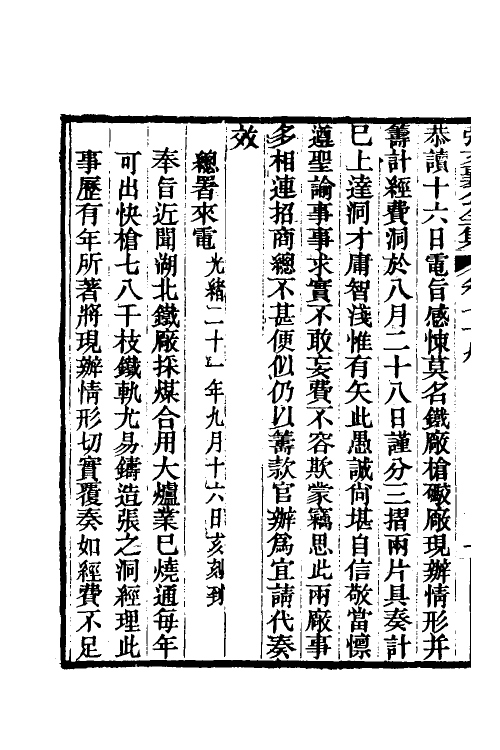 恭讀十六日電旨感悚莫名鐵廠槍礮廠現辦情形并
籌計經費洞於八月二十八日謹分三摺兩片具奏計
已上達洞才庸智淺惟有矢此愚誠尙堪自信敬當懔
遵聖諭事事求實不敢妄費不容欺蒙竊思此兩廠事
多相連招商總不甚便似仍以籌款官辦爲宜請代奏
效
總署來電光緒二十一年九月十六日亥刻到
奉旨近聞湖北鐵廠採煤合用大爐業已燒通每年
可出快槍七八千枝鐵軌尤易鑄造張之洞經理此
事歷有年所著將現辦情形切實覆奏如經費不足